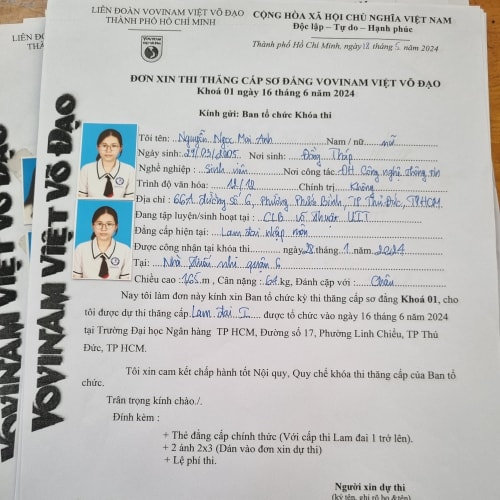 LIÊN ĐOÀN VOVINAM VIỆT VÕ ĐẠO
THÀNH PHỐ HỒ CHÍ MINH
CỘNG HÒA XÃ HỘI CHỦ NGHĨA VIỆT NAM
Độc lập – Tự do – Hạnh phúc
Thành phố Hồ Chí Minh, ngày 12 tháng 5 năm 2024
ĐƠN XIN THI THĂNG CẤP SƠ ĐẲNG VOVINAM VIỆT VÕ ĐẠO
Khoá 01 ngày 16 tháng 6 năm 2024
Kính gửi: Ban tổ chức Khóa thi
Tôi tên: Nguyễn Ngọc Mai Anh Nam / nữ nữ
Ngày sinh: 29/03/2005. Nơi sinh: Đồng Tháp
Nghề nghiệp: Sinh viên Nơi công tác: ĐH Công nghệ thông tin
Trình độ văn hóa: 12/12 Chính trị: Không
Địa chỉ: 66A đường số 6, Phường Phước Bình, TP. Thủ Đức, TPHCM
Đang tập luyện/sinh hoạt tại: CLB Võ thuật UIT
Đẳng cấp hiện tại: Lam đai nhập môn
Được công nhận tại khóa thi: ngày 28 tháng 1 năm 2024
Tại: Nhà thiếu nhi quận 6
Chiều cao: 1,65 m, Cân nặng: 61 kg, Đánh cặp với: Châu
Nay tôi làm đơn này kính xin Ban tổ chức kỳ thi thăng cấp sơ đẳng Khoá 01, cho
tôi được dự thi thăng cấp Lam đai I được tổ chức vào ngày 16 tháng 6 năm 2024
tại Trường Đại học Ngân hàng TP HCM, Đường số 17, Phường Linh Chiểu, TP Thủ
Đức, TP HCM.
Tôi xin cam kết chấp hành tốt Nội quy, Quy chế khóa thi thăng cấp của Ban tổ
chức.
Trân trọng kính chào./.
Đính kèm :
+ Thẻ đẳng cấp chính thức (Với cấp thi Lam đai 1 trở lên).
+ 2 ảnh 2x3 (Dán vào đơn xin dự thi)
+ Lệ phí thi.
Người xin dự thi
(ký tên, ghi rõ họ &tên)
VOVINAM VIỆT VÕ ĐẠO
VOVINAM VIỆT VÕ ĐẠO
LIÊN ĐOÀN
THÀNH